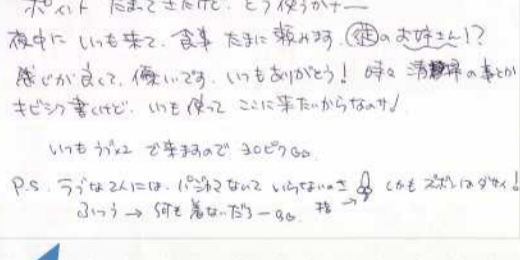 ポイント たまってきたけど、どう使うかナー
夜中に いつも来て、食事 たまに頼みます。㊙のお姉さん!?
感じが良くて、優しいです。いつもありがとう! 時々 清掃の事とか
キビシク書くけど、いつも使って ここに来たいからなのサ!
いつもラブ×2 で来ますので ヨロピク
P.S. ラブな2人には、パジャマなんていらないのさ しかもズボンはダサイ!
ふつう → 何も着ないだろー 指→